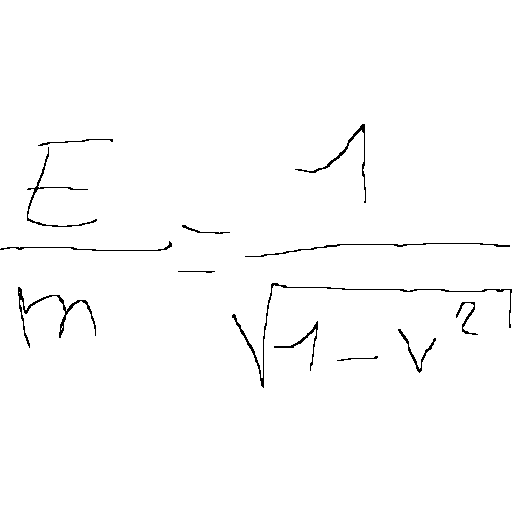 \frac{E}{m} = \frac{1}{\sqrt{1 - v^2}}